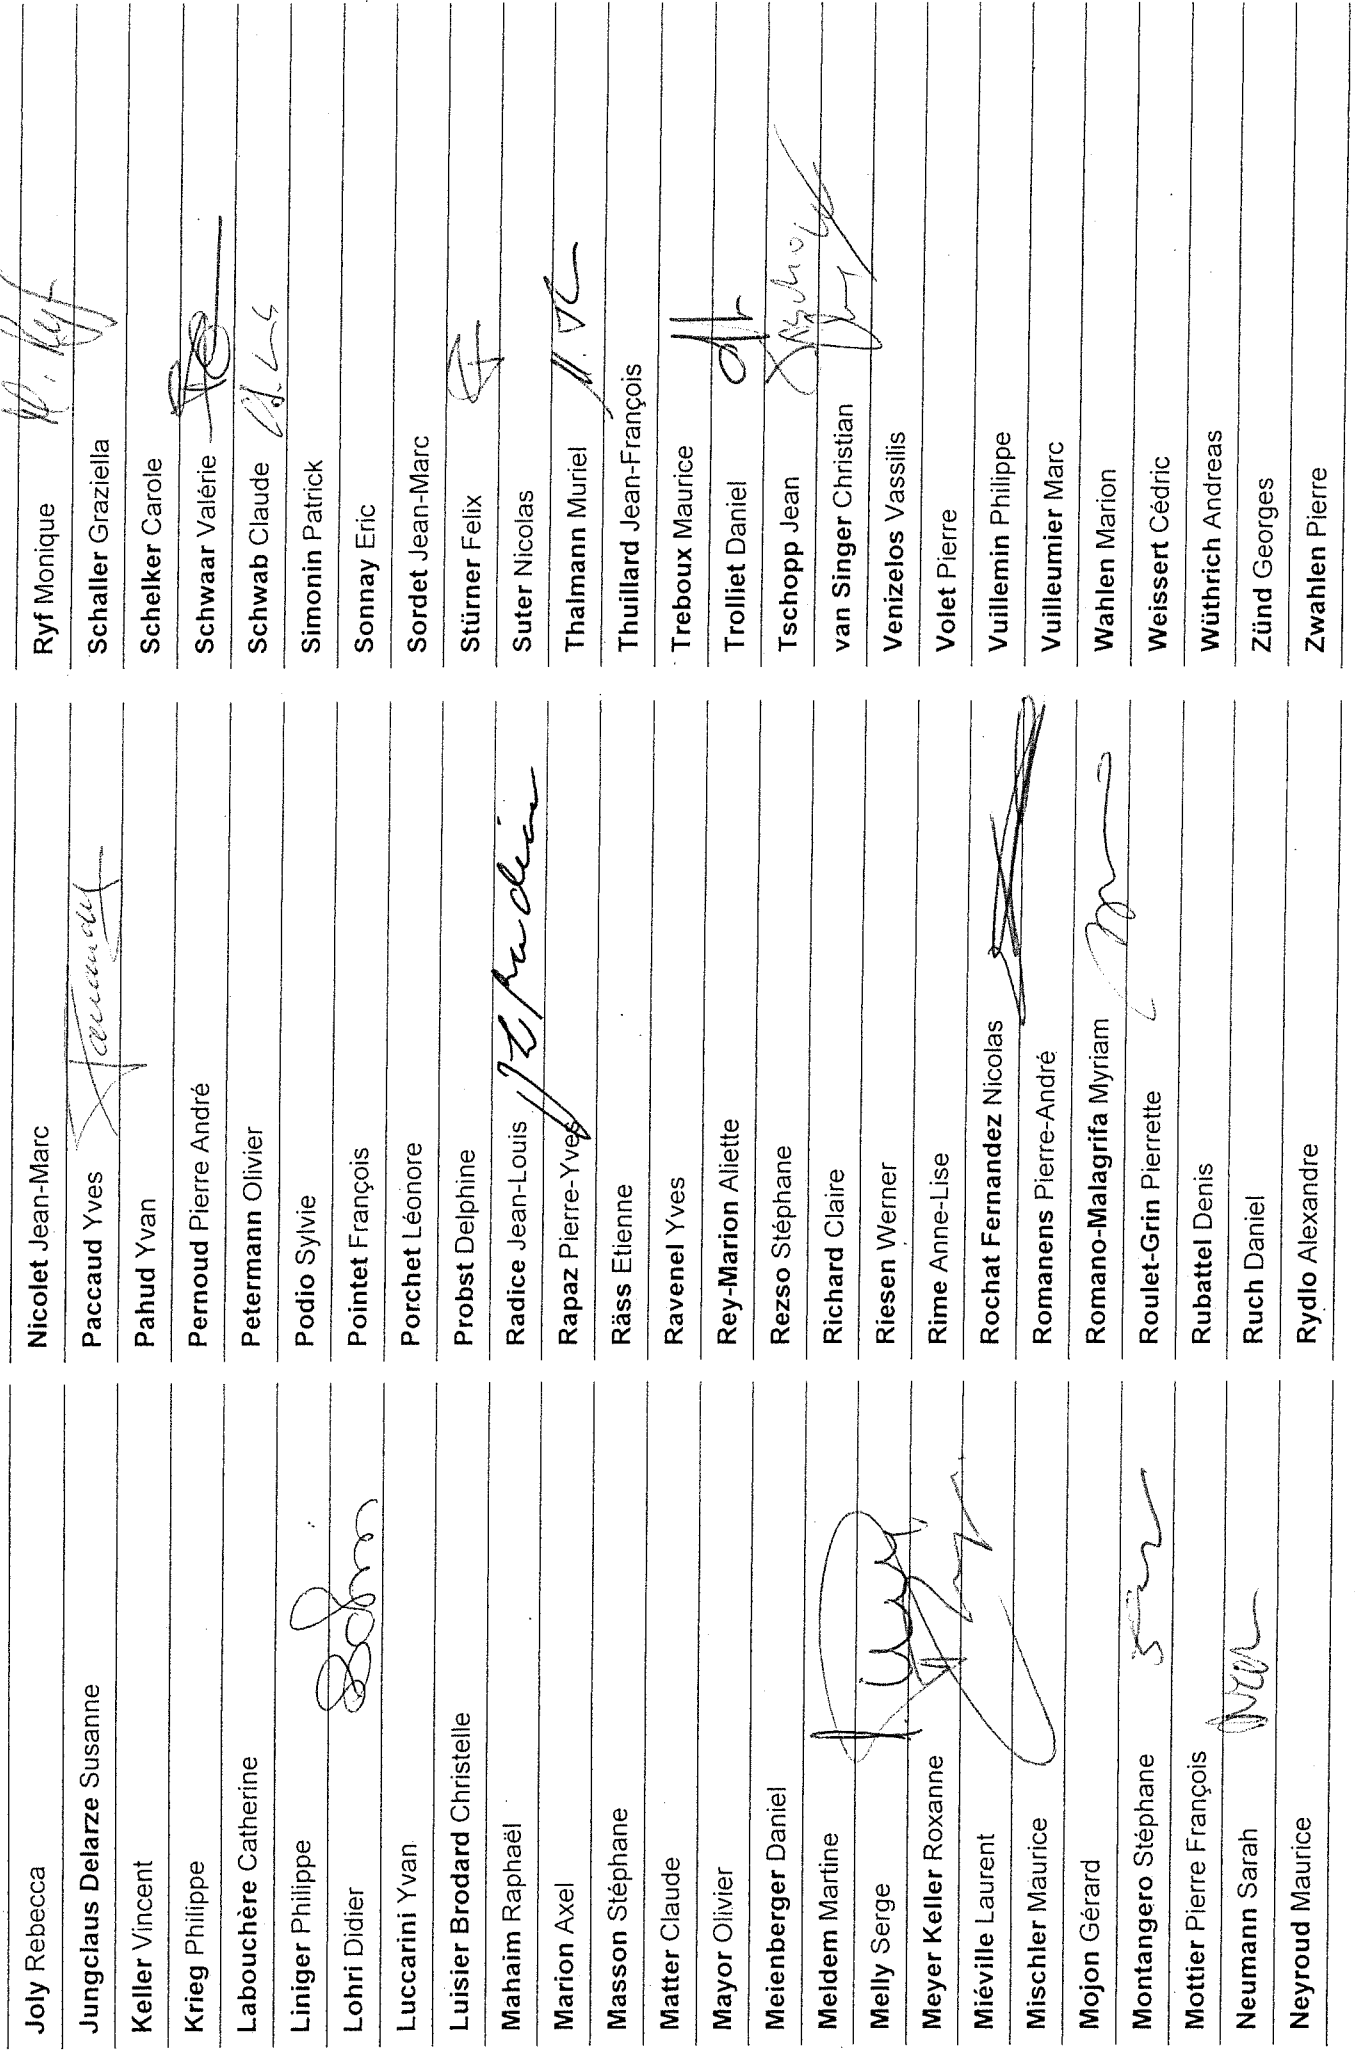 Joly Rebecca
Jungclaus Delarze Susanne
Keller Vincent
Krieg Philippe
Labouchère Catherine
Liniger Philippe
Lohri Didier
Luccarini Yvan
Luisier Brodard Christelle
Mahaim Raphaël
Marion Axel
Masson Stéphane
Matter Claude
Mayor Olivier
Meienberger Daniel
Meldem Martine
Melly Serge
Meyer Keller Roxanne
Miéville Laurent
Mischler Maurice
Mojon Gérard
Montangero Stéphane
Mottier Pierre François
Neumann Sarah
Neyroud Maurice
Nicolet Jean-Marc
Paccaud Yves
Pahud Yvan
Pernoud Pierre André
Petermann Olivier
Podio Sylvie
Pointet François
Porchet Léonore
Probst Delphine
Radice Jean-Louis
Rapaz Pierre-Yves
Räss Etienne
Ravenel Yves
Rey-Marion Aliette
Rezso Stéphane
Richard Claire
Riesen Werner
Rime Anne-Lise
Rochat Fernandez Nicolas
Romanens Pierre-André
Romano-Malagrifa Myriam
Roulet-Grin Pierrette
Rubattel Denis
Ruch Daniel
Rydlo Alexandre
Ryf Monique M. Ryf
Schaller Graziella
Schelker Carole
Schwaar Valérie
Schwab Claude
Simonin Patrick
Sonnay Eric
Sordet Jean-Marc
Stürner Felix
Suter Nicolas
Thalmann Muriel
Thuillard Jean-François
Treboux Maurice
Trolliet Daniel
Tschopp Jean
van Singer Christian
Venizelos Vassilis
Volet Pierre
Vuillemin Philippe
Vuilleumier Marc
Wahlen Marion
Weissert Cédric
Wüthrich Andreas
Zünd Georges
Zwahlen Pierre